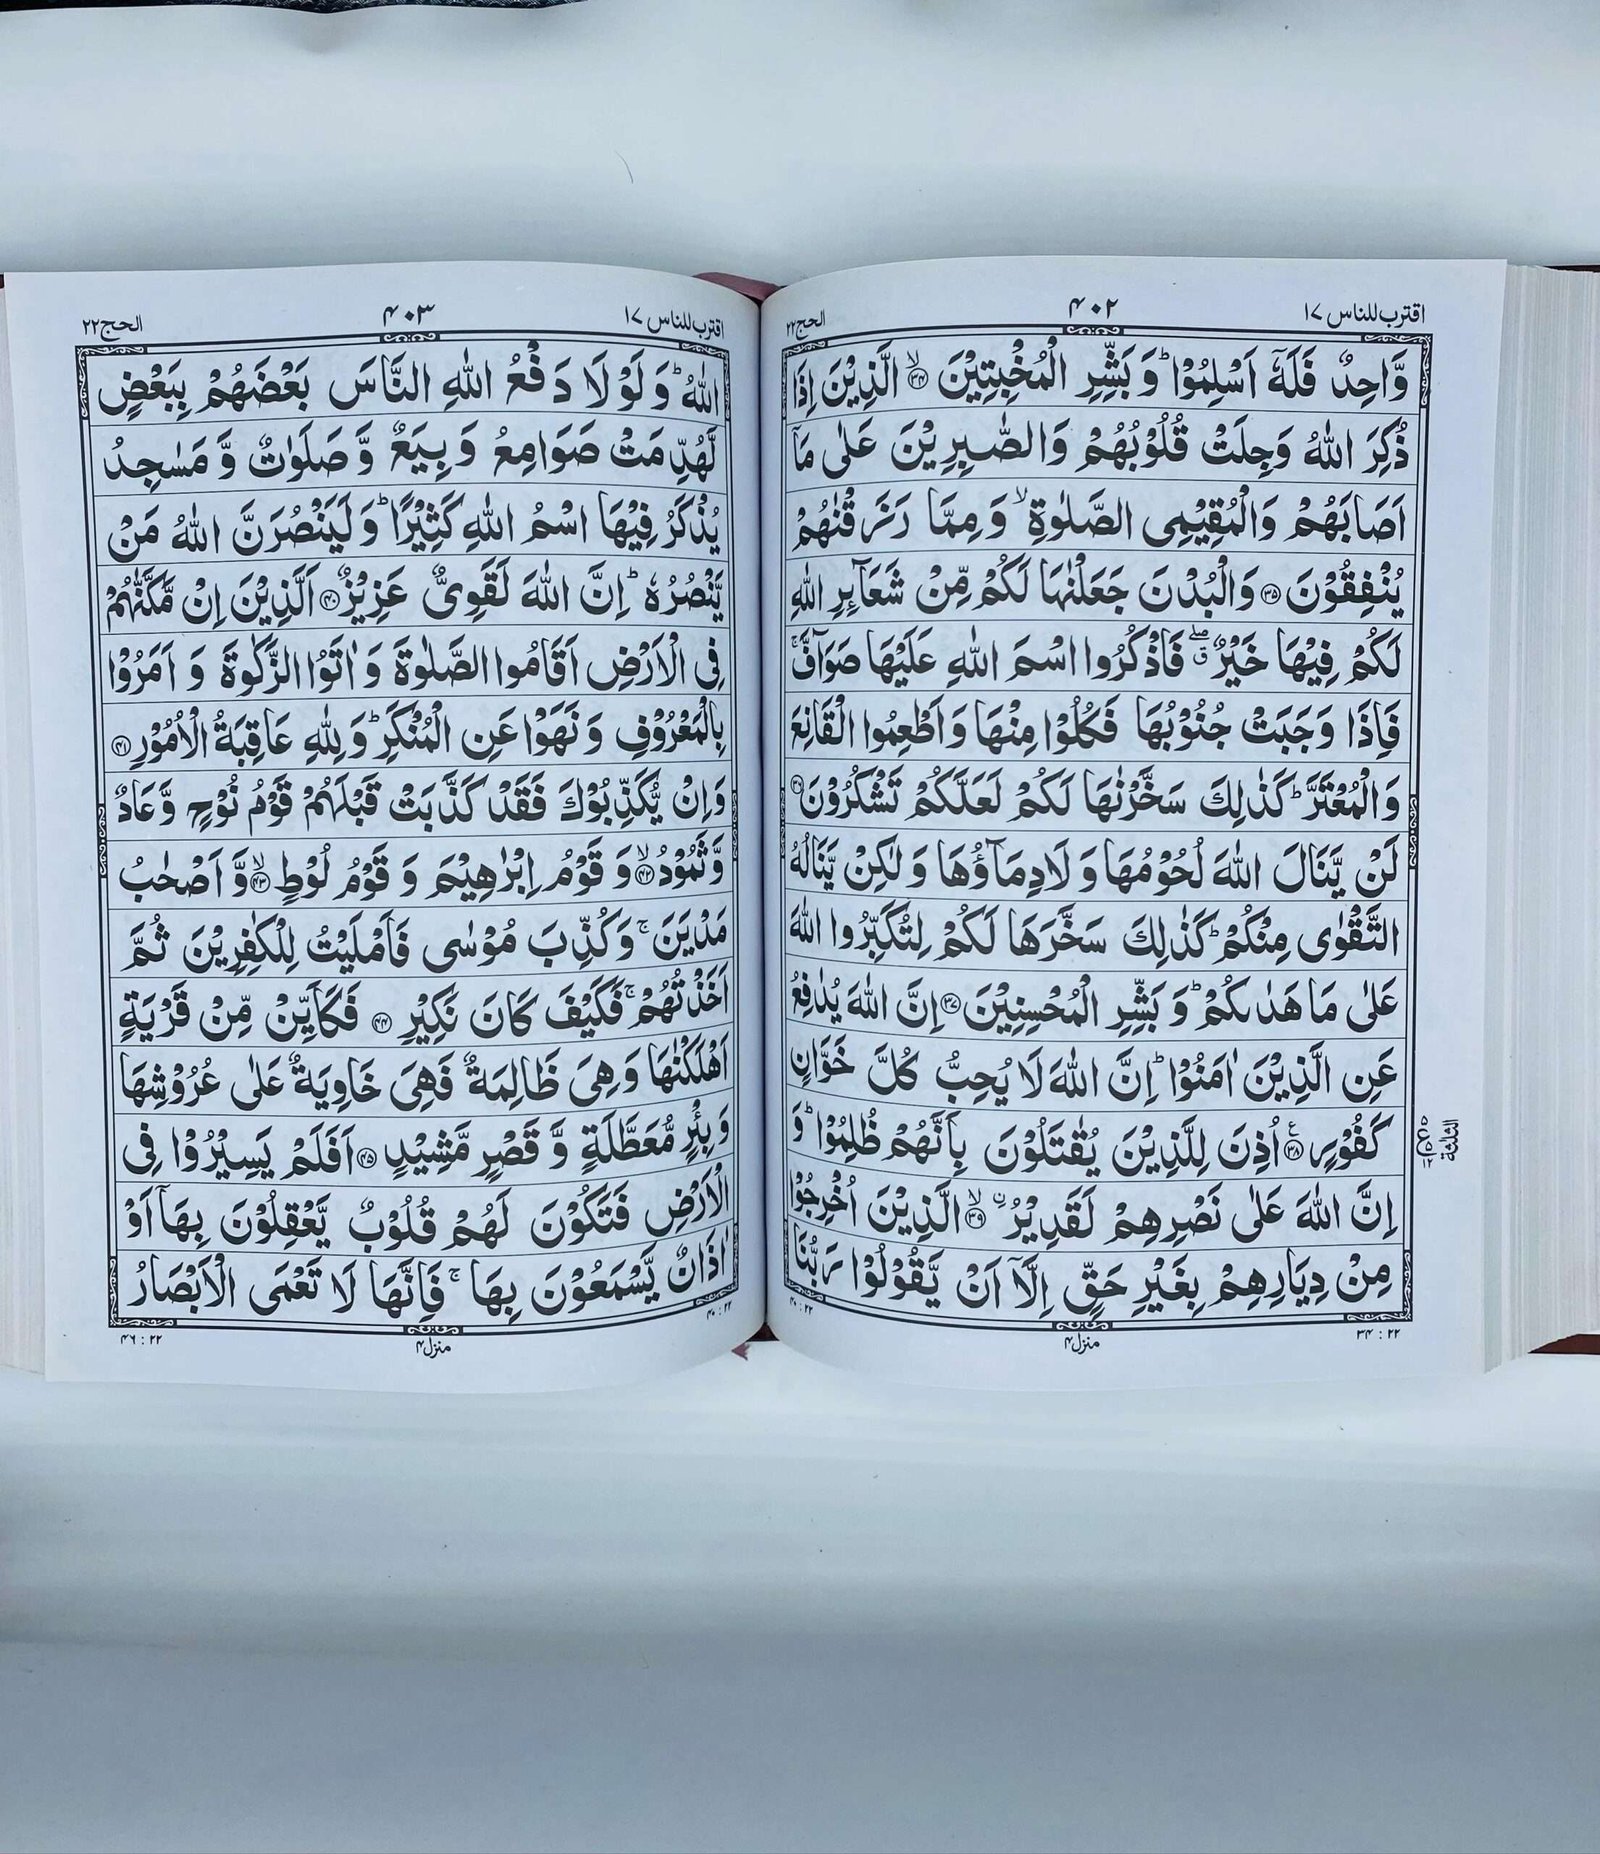 اقترب للناس ۱۷
۴۰۲
الحج ۲۲
وَّاحِدٌ فَلَهٗۤ اَسْلِمُوْا ؕ وَ بَشِّرِ الْمُخْبِتِيْنَ ۙ‏﴿۳۴﴾ الَّذِيْنَ اِذَا
ذُكِرَ اللّٰهُ وَجِلَتْ قُلُوْبُهُمْ وَالصّٰبِرِيْنَ عَلٰى مَاۤ
اَصَابَهُمْ وَالْمُقِيْمِى الصَّلٰوةِ ۙ وَ مِمَّا رَزَقْنٰهُمْ
يُنْفِقُوْنَ ﴿۳۵﴾ وَالْبُدْنَ جَعَلْنٰهَا لَكُمْ مِّنْ شَعَآئِرِ اللّٰهِ
لَكُمْ فِيْهَا خَيْرٌ ۖۗ فَاذْكُرُوا اسْمَ اللّٰهِ عَلَيْهَا صَوَآفَّ ۚ
فَاِذَا وَجَبَتْ جُنُوْبُهَا فَكُلُوْا مِنْهَا وَاَطْعِمُوا الْقَانِعَ
وَالْمُعْتَرَّ ؕ كَذٰلِكَ سَخَّرْنٰهَا لَكُمْ لَعَلَّكُمْ تَشْكُرُوْنَ ﴿۳۶﴾
لَنْ يَّنَالَ اللّٰهَ لُحُوْمُهَا وَلَا دِمَآؤُهَا وَلٰكِنْ يَّنَالُهُ
التَّقْوٰى مِنْكُمْ ؕ كَذٰلِكَ سَخَّرَهَا لَكُمْ لِتُكَبِّرُوا اللّٰهَ
عَلٰى مَا هَدٰىكُمْ ؕ وَ بَشِّرِ الْمُحْسِنِيْنَ ﴿۳۷﴾ اِنَّ اللّٰهَ يُدٰفِعُ
عَنِ الَّذِيْنَ اٰمَنُوْا ؕ اِنَّ اللّٰهَ لَا يُحِبُّ كُلَّ خَوَّانٍ
كَفُوْرٍ ﴿۳۸﴾ اُذِنَ لِلَّذِيْنَ يُقٰتَلُوْنَ بِاَنَّهُمْ ظُلِمُوْا ؕ وَ
اِنَّ اللّٰهَ عَلٰى نَصْرِهِمْ لَقَدِيْرُ ۙ ﴿۳۹﴾ اۨلَّذِيْنَ اُخْرِجُوْا
مِنْ دِيَارِهِمْ بِغَيْرِ حَقٍّ اِلَّاۤ اَنْ يَّقُوْلُوْا رَبُّنَا
الثلٰثة
۱۲
۳۴ : ۲۲
منزل ۴
۴۰ : ۲۲
اقترب للناس ۱۷
۴۰۳
الحج ۲۲
اللّٰهُ ؕ وَلَوْلَا دَفْعُ اللّٰهِ النَّاسَ بَعْضَهُمْ بِبَعْضٍ
لَّهُدِّمَتْ صَوَامِعُ وَبِيَعٌ وَّصَلَوٰتٌ وَّمَسٰجِدُ
يُذْكَرُ فِيْهَا اسْمُ اللّٰهِ كَثِيْرًا ؕ وَلَيَنْصُرَنَّ اللّٰهُ مَنْ
يَّنْصُرُهٗ ؕ اِنَّ اللّٰهَ لَقَوِىٌّ عَزِيْزٌ ﴿۴۰﴾ اَلَّذِيْنَ اِنْ مَّكَّنّٰهُمْ
فِى الْاَرْضِ اَقَامُوا الصَّلٰوةَ وَاٰتَوُا الزَّكٰوةَ وَ اَمَرُوْا
بِالْمَعْرُوْفِ وَنَهَوْا عَنِ الْمُنْكَرِ ؕ وَلِلّٰهِ عَاقِبَةُ الْاُمُوْرِ ﴿۴۱﴾
وَاِنْ يُّكَذِّبُوْكَ فَقَدْ كَذَّبَتْ قَبْلَهُمْ قَوْمُ نُوْحٍ وَّعَادٌ
وَّثَمُوْدُ ۙ ﴿۴۲﴾ وَ قَوْمُ اِبْرٰهِيْمَ وَ قَوْمُ لُوْطٍ ۙ ﴿۴۳﴾ وَّ اَصْحٰبُ
مَدْيَنَ ۚ وَكُذِّبَ مُوْسٰى فَاَمْلَيْتُ لِلْكٰفِرِيْنَ ثُمَّ
اَخَذْتُهُمْ ۚ فَكَيْفَ كَانَ نَكِيْرِ ﴿۴۴﴾ فَكَاَيِّنْ مِّنْ قَرْيَةٍ
اَهْلَكْنٰهَا وَهِىَ ظَالِمَةٌ فَهِىَ خَاوِيَةٌ عَلٰى عُرُوْشِهَا
وَبِئْرٍ مُّعَطَّلَةٍ وَّ قَصْرٍ مَّشِيْدٍ ﴿۴۵﴾ اَفَلَمْ يَسِيْرُوْا فِى
الْاَرْضِ فَتَكُوْنَ لَهُمْ قُلُوْبٌ يَّعْقِلُوْنَ بِهَاۤ اَوْ
اٰذَانٌ يَّسْمَعُوْنَ بِهَا ۚ فَاِنَّهَا لَا تَعْمَى الْاَبْصَارُ
۴۰ : ۲۲
منزل ۴
۴۶ : ۲۲